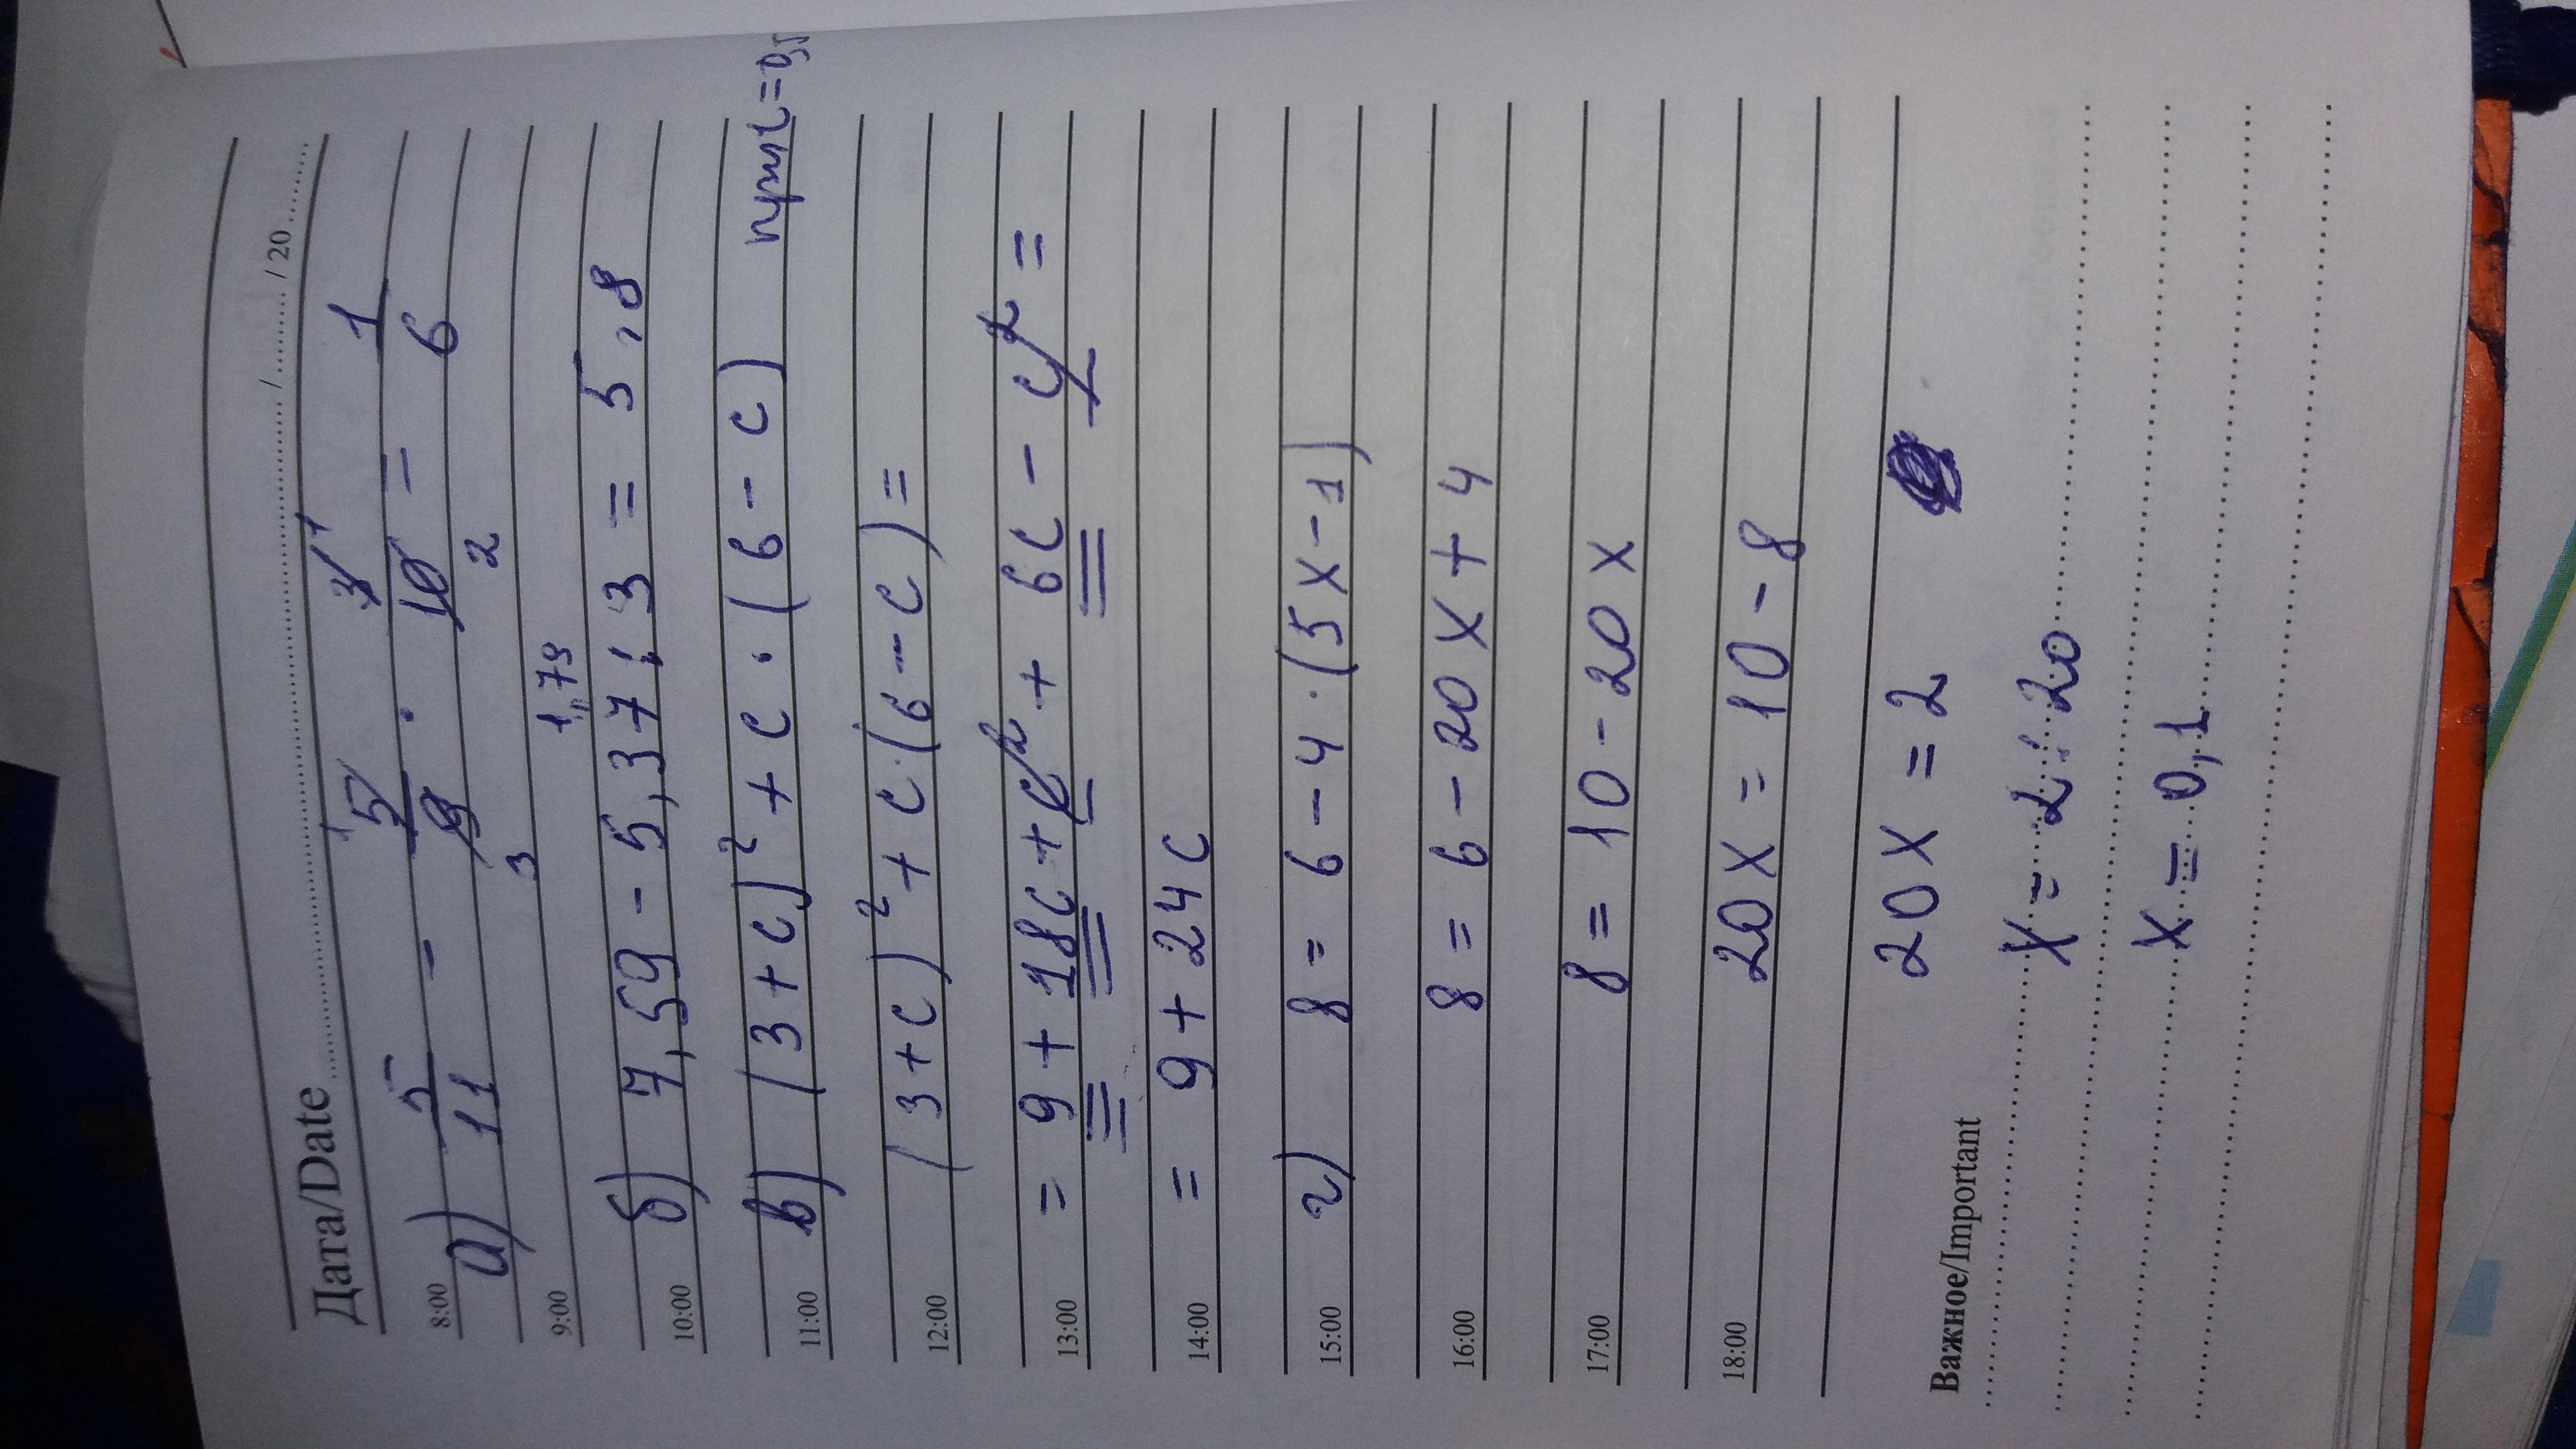 Дата/Date ........ / ........ / 20........
8:00
а) 5/11 - 5/9 · 3/10 = 1/6
1 1
3 2
9:00
1,79
10:00 б) 7,59 - 5,37 : 3 = 5,8
11:00 в) (3+c)² + c · (6 - c) пусть c=0,5
12:00 (3+c)² + c·(6-c) =
13:00 = 9 + 18c + c² + 6c - c² =
14:00 = 9 + 24c
15:00 г) 8 = 6 - 4·(5x-1)
16:00 8 = 6 - 20x + 4
17:00 8 = 10 - 20x
18:00 20x = 10 - 8
20x = 2
Важное/Important
x = 2 : 20
x = 0,1